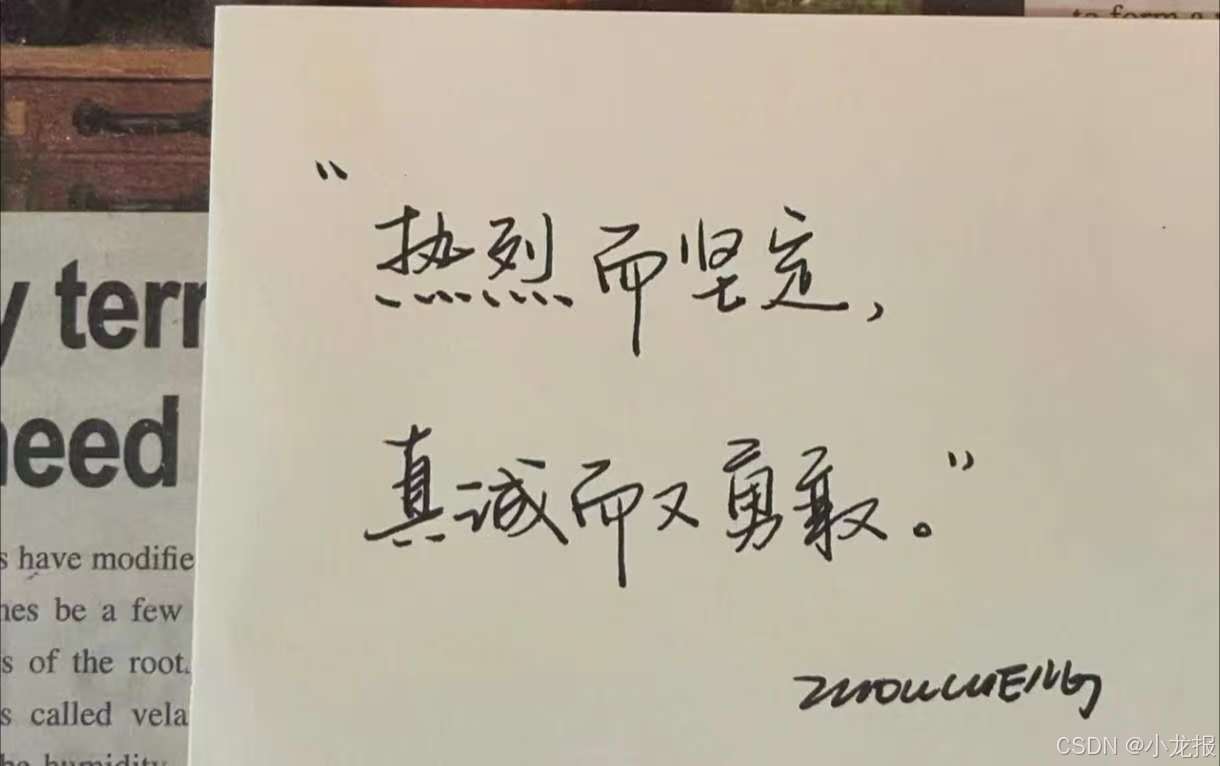 to form a
y terr
need
“热烈而坚定，
真诚而又勇敢。”
s have modifie
nes be a few
s of the root.
s called vela
he humidity
CSDN @小龙报